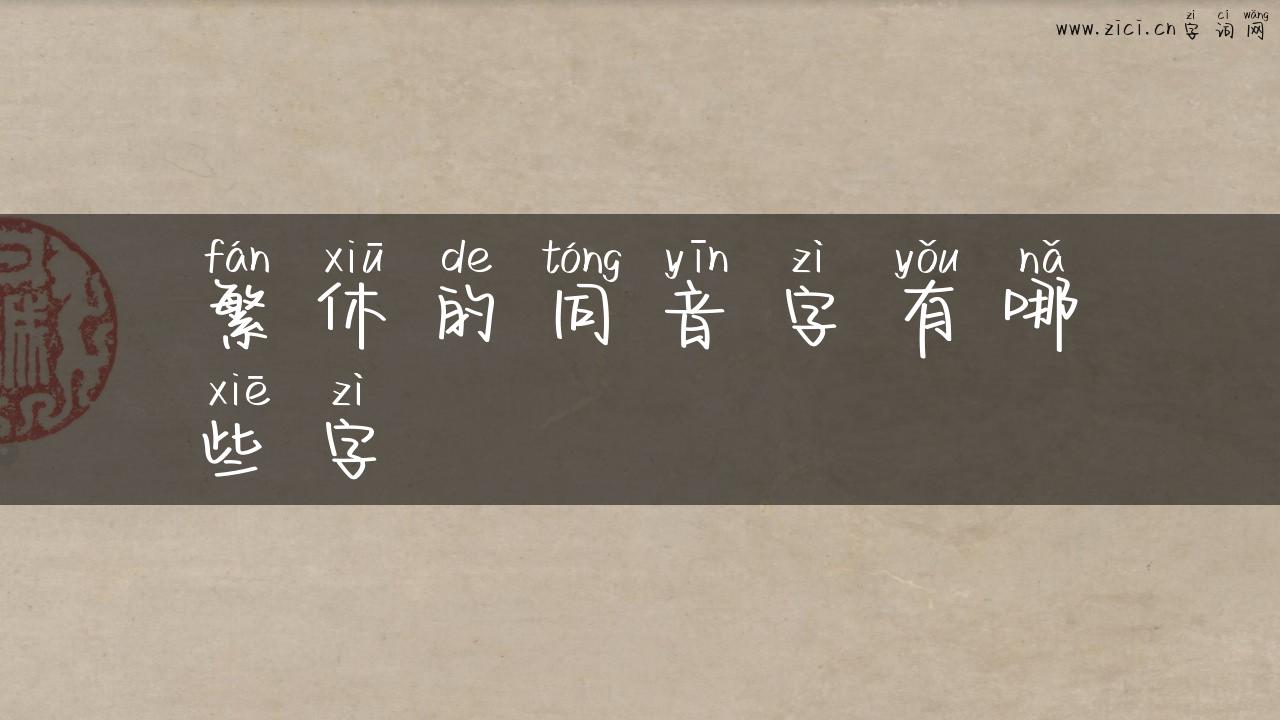 zì cí wǎng
www.zici.cn 字 词 网
fán xiū de tóng yīn zì yǒu nǎ
繁 休 的 同 音 字 有 哪
xiē zì
些 字